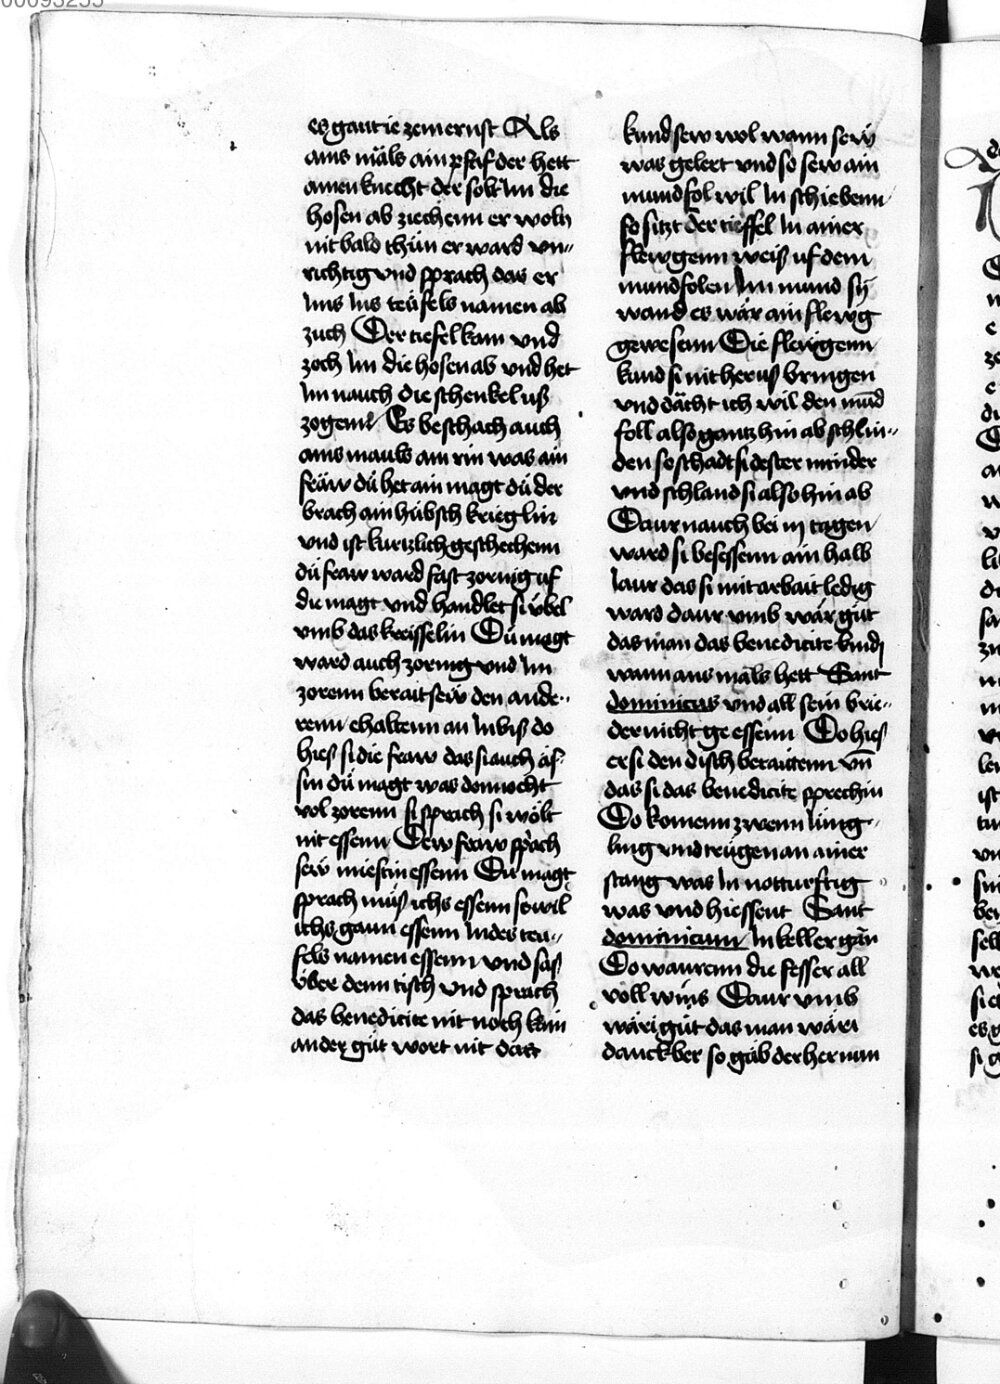 es gant ie zem ernst Als
ains mäls ain pfaf der hett
ainen knecht der solt Im die
hosen ab ziechenn er wolt
nit bald thün er ward vn„
richtig vnd sprach das er
Ims Ins teüfels namen ab
zuch Der tiefel kam vnd
zoch Im die hosen ab vnd het
Im nauch die schenkel uß
zogenn Es beschach auch
ains mauls am rin was ain
fräw dü het ain magt dü der
brach ain hübsch krieglin
vnd ist kurtzlich geschechenn
dü fraw ward fast zornig uf
die magt vnd handlet si übel
vmb das kreisselin Dü magt
ward auch zornig vnd Im
zorenn berait sew den ande„
renn ehaltenn an Inbiß do
hieß si die fraw das si auch äs
sin dü magt was dennocht
vol zorenn si sprach si wölt
nit essenn Dew fraw sprach
sew miestin essenn Dü magt
sprach müß ichs essenn so wil
ichs gann essenn In des teu„
fels namen essenn vnd saß
über denn tisch vnd sprach
das benedicite nit noch kain
ander güt wort nit das
kund sew wol wann sew
was gelert vnd so sew ain
mundfol wil In schiebenn
so sitzt der tieffel In ainer
flewgenn weiß uf dem
mundfolen Im mund sy
wand es wär ain flewg
gewesenn Die flewgenn
kund si nit heruß bringen
vnd dächt ich wil den mund
foll also gantz hin ab schlin„
den so schadt si dester minder
vnd schland si also hin ab
Daurnauch bei iij tagen
ward si besessenn ain halb
Iaur das si mit arbait ledig
ward daur vmb wär güt
das man das benedicite kind
wann ains mäls hett Sant
dominicus vnd all sein brie„
der nicht ge essenn Do hieß
er si den disch beraitenn vnd
das si das benedicite sprechin
Do komenn zwenn Iüng„
ling vnd trügen an ainer
stang was In notturftig
was vnd hiessent Sant
dominicum In keller gän
Do waurenn die fesser all
voll wins Daur vmb
wäri güt das man wäri
danckber so gäb der her nun